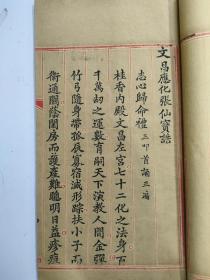 文昌應化張仙寶誥
志心歸命禮 三叩首誦三遍
桂香内殿文昌左宫七十二化之法身
千萬劫之運數育嗣天下演教人間金彈
竹弓隨身帶孤辰寡宿滅形踪扶小子而
衛通關蔭閨房而護產難聰明日益疹痘